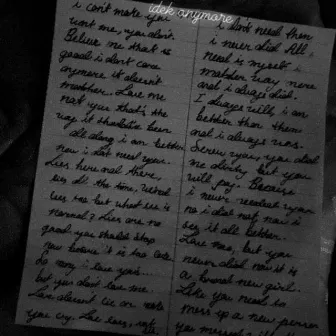 idek anymore
i can't make you
want me, you don't.
Believe me that is
good i dont care
anymore it doesnt
matther. Love me
not you that's the
way it shoulda been
all along i am better
now i dont need you.
Lies here and there,
lies all the time,
lies too but what lie is
normal? Lies are no
good you should stop
now before it is too late
So many i love you's...
but you dont love me.
Love doesnt lie or
you cry. Love
i don't need them
i never did. All i
need is myself i
matter way more
and i always did.
I always will, i am
better than them
and i always was.
Screw you, you did
me dirty but you
will pay. Because
i never needed
no i did not now i
see it all better.
Love me, but you
never did now it is
a new girl.
Like you need to
mess up a new person
you messed